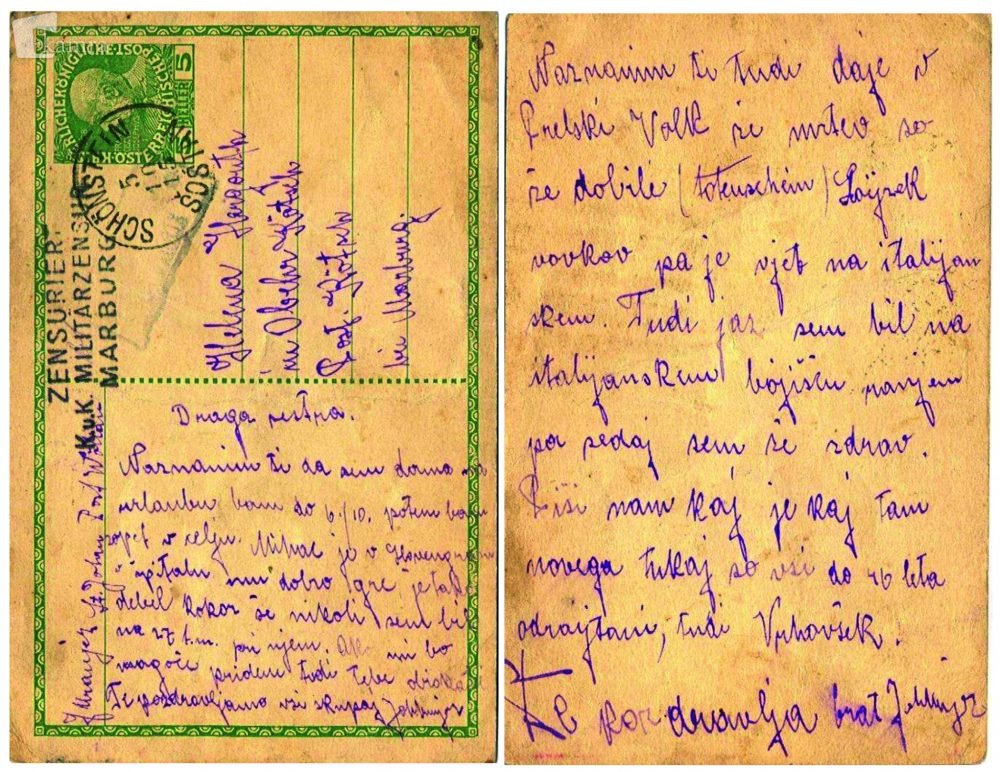 Kamra
KAISERLICHE KÖNIGLICHE ÖSTERREICHISCHE POST
5 HELLER
SCHÖNSTEIN
ŠOŠTANJ
ZENSURIERT
K.u.K MILITÄRZENSUR
MARBURG
Helena
in Ober
Post
bei Marburg
Draga sestra.
Naznanim ti da sem doma na
urlaubu bom do 6/10. potem bom
zopet v celju. Mihac je v
špitalu mu dobro gre je tak
debil kokor še nikoli sem bil
na 27 t.m. pri njem. Ako mi bo
mogoče pridem tudi tebe
Te pozdravljamo vsi skupaj
St. Johann Post Wöllan
Naznanim ti tudi daje v
Volk že mrtev so
že dobile (totenschein) Lojzek
vovkov pa je vjet na italijan
skem. Tudi jaz sem bil na
italijanskem bojišču ranjem
pa sedaj sem še zdrav.
Piši nam kaj je kaj tam
novega tukaj so vsi do 46 leta
odrajtani, tudi Vrhovšek.
Te pozdravlja brat